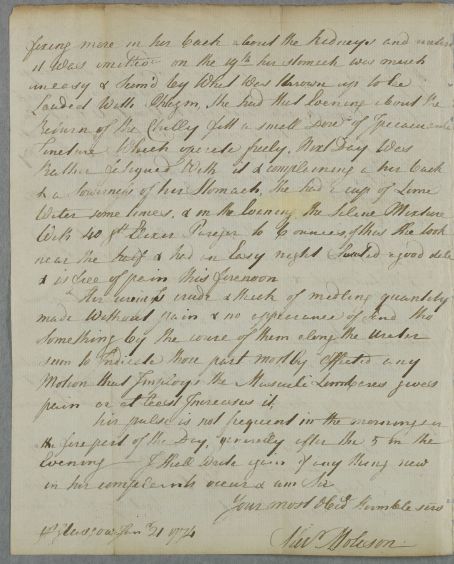 fixing more in her back about the Kidneys and
it was omitted on the 19th her stomach was much
uneasy & seem'd by what was thrown up to be
Loaded with Phlegm, She had that Evening about the
Return of the Chilly fitt a small Dose of Ipecacuan
Tincture which operate freely, Next Day was
Rather fatigued with it & complaining a her back
& a sowerness of her Stomach, she had a cup of Lime
Water some times, & in the Evening the Saline Mixture
With 40 gt Elixr Pareger to 6 ounces, of this she took
near the half & had an Easy night Sweated a good dale
& is free of pain this forenoon
Her urine is crude & thick of midling quantity
made without pain & no appearance of Sand tho
something by the course of them along the ureter
seem to Indicate those part mostly affected any
Motion that Imploys the Musculi Lumbares gives
pain or at least Increases it,
her pulse is not frequent in the mornings or
the fore part of the Day, generally after the 5 in the
Evening I shall write you if any thing new
in her complaints occur & am Sir
Your most Obed humble serv
Glasgow 21 1774